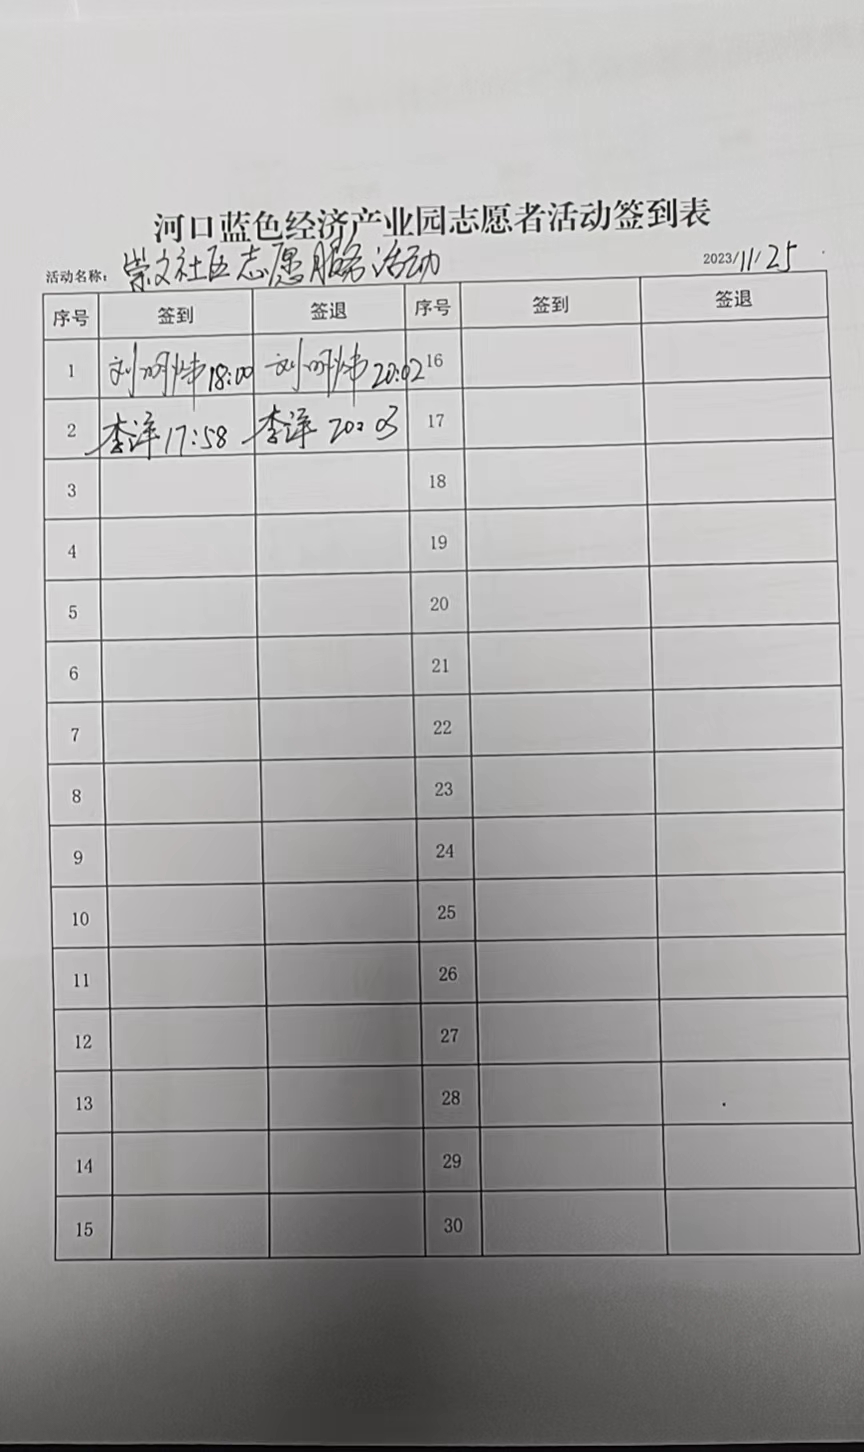 河口蓝色经济产业园志愿者活动签到表
活动名称：崇文社区志愿服务活动 2023/11/25
序号 签到 签退 序号 签到 签退
1 刘明炜 18:00 刘明炜 20:02 16
2 李洋 17:58 李洋 20:03 17
3 18
4 19
5 20
6 21
7 22
8 23
9 24
10 25
11 26
12 27
13 28
14 29
15 30